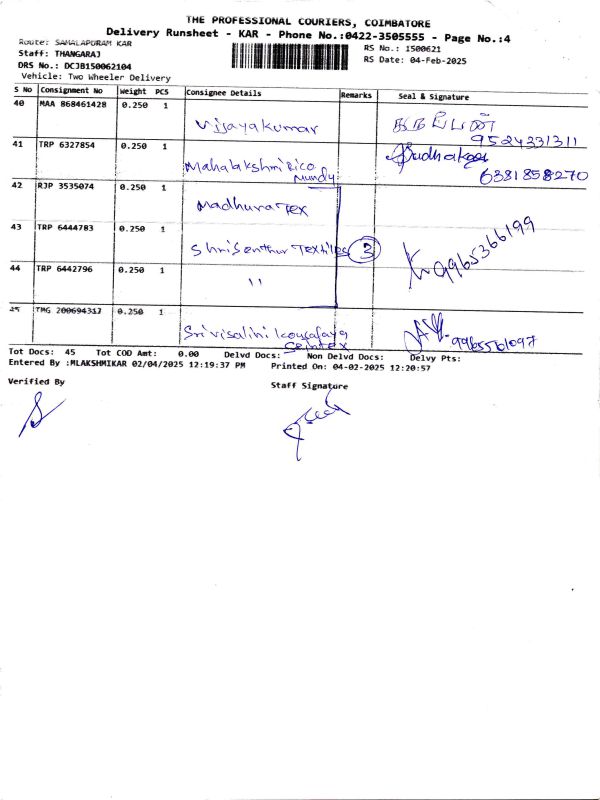 THE PROFESSIONAL COURIERS, COIMBATORE
Delivery Runsheet - KAR - Phone No.:0422-3505555 - Page No.:4
Route: SAMALAPURAM KAR
RS No.: 1500621
Staff: THANGARAJ
RS Date: 04-Feb-2025
DRS No.: DCJB150062104
Vehicle: Two Wheeler Delivery
S No Consignment No Weight PCS Consignee Details Remarks Seal & Signature
40 MAA 868461428 0.250 1
Vijayakumar
9524331311
41 TRP 6327854 0.250 1
Mahalakshmi Rice Sudhakar
Mundy 6381858270
42 RJP 3535074 0.250 1
Madhura Tex
43 TRP 6444783 0.250 1
Shri Senthur Textiles 3 9965366199
44 TRP 6442796 0.250 1
"
45 TMG 200694317 0.250 1
Sri visalini 9965561097
Tot Docs: 45 Tot COD Amt: 0.00 Delvd Docs: Non Delvd Docs: Delvy Pts:
Entered By :MLAKSHMIKAR 02/04/2025 12:19:37 PM Printed On: 04-02-2025 12:20:57
Verified By Staff Signature